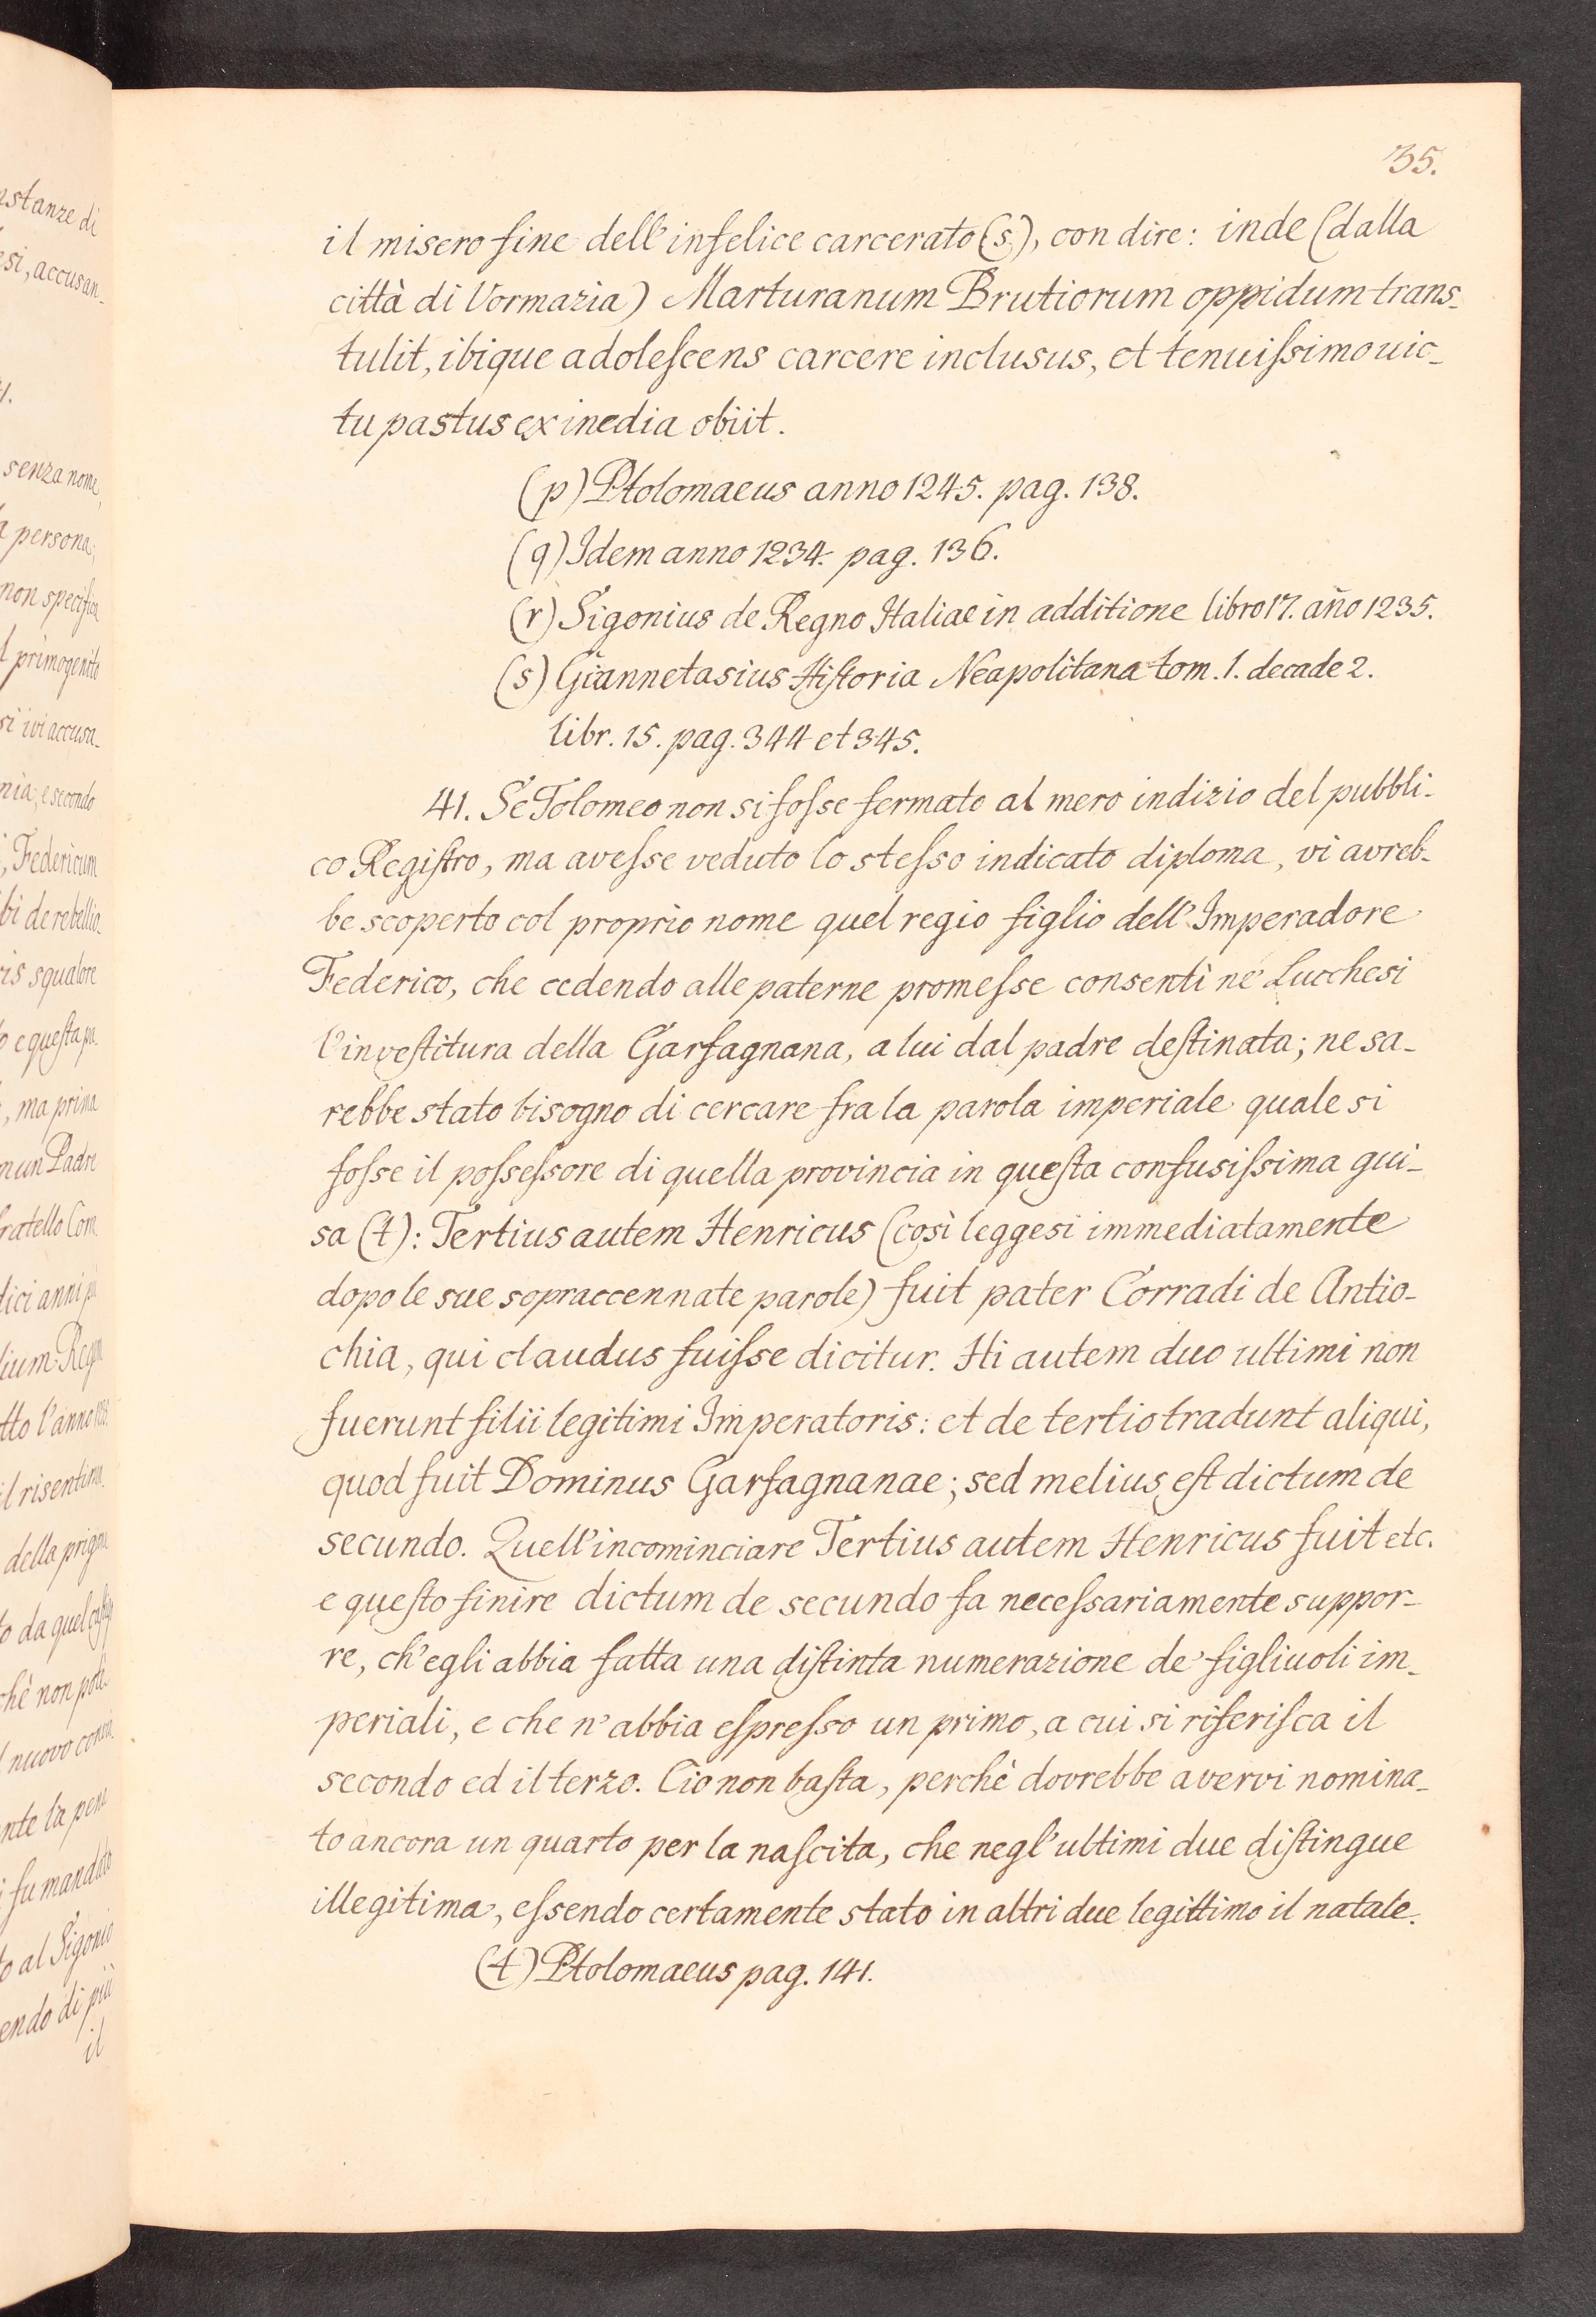 35.
il misero fine dell'infelice carcerato (s), con dire: inde (dalla
città di Vormazia) Marturanum Brutiorum oppidum trans-
tulit, ibique adoleſcens carcere inclusus, et tenuiſsimo uic-
tu pastus ex inedia obiit.
(p) Ptolomaeus anno 1245. pag. 138.
(q) Idem anno 1234. pag. 136.
(r) Sigonius de Regno Italiae in additione libro 17. año 1235.
(s) Giannetasius Hiſtoria Neapolitana tom. 1. decade 2.
libr. 15. pag. 344 et 345.
41. Se Tolomeo non si foſse fermato al mero indizio del pubbli-
co Regiſtro, ma aveſse veduto lo steſso indicato diploma, vi avreb-
be scoperto col proprio nome quel regio figlio dell'Imperadore
Federico, che cedendo alle paterne promeſse consentì ne' Lucchesi
l'inveſtitura della Garfagnana, a lui dal padre deſtinata; ne sa-
rebbe stato bisogno di cercare fra la parola imperiale quale si
foſse il poſseſsore di quella provincia in queſta confusiſsima gui-
sa (t): Tertius autem Henricus (così leggesi immediatamente
dopo le sue sopraccennate parole) fuit pater Corradi de Antio-
chia, qui claudus fuiſse dicitur. Hi autem duo ultimi non
fuerunt filii legitimi Imperatoris: et de tertio tradunt aliqui,
quod fuit Dominus Garfagnanae; sed melius eſt dictum de
secundo. Quell'incominciare Tertius autem Henricus fuit etc.
e queſto finire dictum de secundo fa neceſsariamente suppor-
re, ch'egli abbia fatta una diſtinta numerazione de' figliuoli im-
periali, e che n'abbia eſpreſso un primo, a cui si riferiſca il
secondo ed il terzo. Cio non baſta, perchè dovrebbe avervi nomina-
to ancora un quarto per la naſcita, che negl'ultimi due diſtingue
illegitima, eſsendo certamente stato in altri due legittimo il natale.
(t) Ptolomaeus pag. 141.